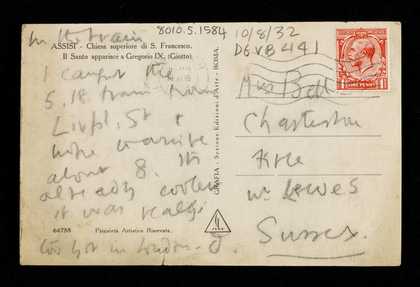 In the train
8010.5.1584
10/8/32
DGVB 441
ASSISI - Chiesa superiore di S. Francesco.
Il Santo apparisce a Gregorio IX. (Giotto).
I caught the
5.18 train from
Livpl. St &
hope to arrive
about 8. Its
already cooler
it was really
too hot in London. D.
64788 Proprietà Artistica Riservata.
GRAFIA - Sezione Edizioni d'Arte - ROMA.
Mrs Bell
Charleston
Firle
nr Lewes
Sussex.